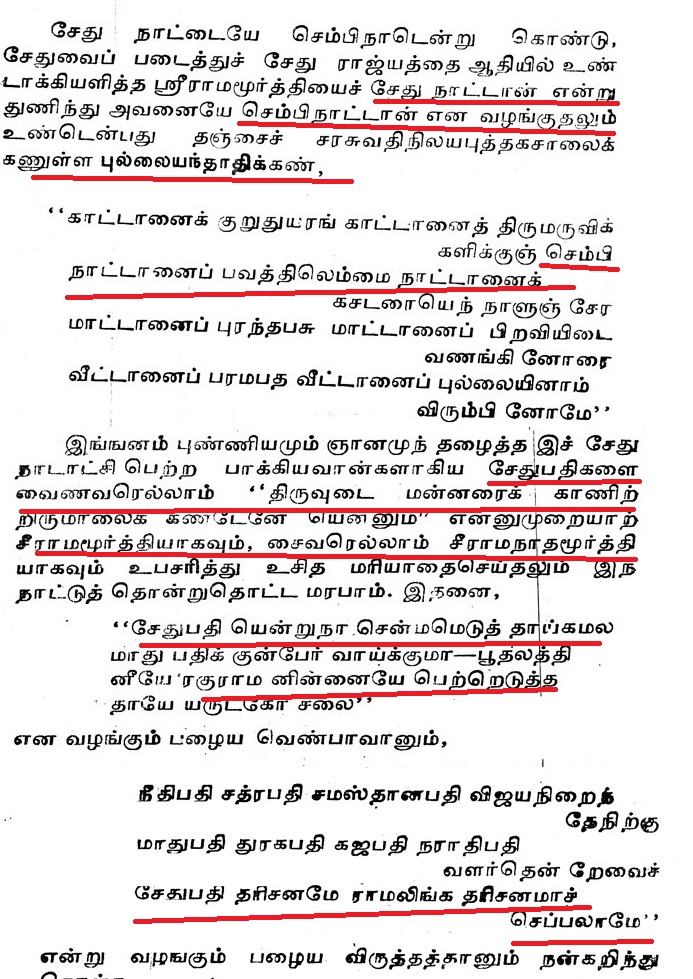 சேது நாட்டையே செம்பிநாடென்று கொண்டு,
சேதுவைப் படைத்துச் சேது ராஜ்யத்தை ஆதியில் உண்
டாக்கியளித்த ஸ்ரீராமமூர்த்தியைச் சேது நாட்டான் என்று
துணிந்து அவனையே செம்பிநாட்டான் என வழங்குதலும்
உண்டென்பது தஞ்சைச் சரசுவதிநிலயபுத்தகசாலைக்
கணுள்ள புல்லையந்தாதிக்கண்,
‘‘காட்டானைக் குறுதுயரங் காட்டானைத் திருமருவிக்
களிக்குஞ் செம்பி
நாட்டானைப் பவத்திலெம்மை நாட்டானைக்
கசடரையெந் நாளுஞ் சேர
மாட்டானைப் புரந்தபசு மாட்டானைப் பிறவியிடை
வணங்கி னோரை
வீட்டானைப் பரமபத வீட்டானைப் புல்லையினாம்
விரும்பி னோமே’’
இங்ஙனம் புண்ணியமும் ஞானமுந் தழைத்த இச் சேது
நாடாட்சி பெற்ற பாக்கியவான்களாகிய சேதுபதிகளை
வைணவரெல்லாம் ‘‘திருவுடை மன்னரைக் காணிற்
றிருமாலைக் கண்டேனே யென்னும்’’ என்னுமுறையாற்
சீராமமூர்த்தியாகவும், சைவரெல்லாம் சீராமநாதமூர்த்தி
யாகவும் உபசரித்து உசித மரியாதைசெய்தலும் இந்
நாட்டுத் தொன்றுதொட்ட மரபாம். இதனை,
‘‘சேதுபதி யென்றுநா சென்மமெடுத் தாய்கமல
மாது பதிக் குன்பேர் வாய்க்குமா—பூதலத்தி
னீயே ரகுராம னின்னையே பெற்றெடுத்த
தாயே யருட்கோ சலை’’
என வழங்கும் பழைய வெண்பாவானும்,
நீதிபதி சத்ரபதி சமஸ்தானபதி விஜயநிறைந்
தேநிற்கு
மாதுபதி துரகபதி கஜபதி நராதிபதி
வளர்தென் றேவைச்
சேதுபதி தரிசனமே ராமலிங்க தரிசனமாச்
செப்பலாமே’’
என்று வழங்கும் பழைய விருத்தத்தானும் நன்கறிந்து